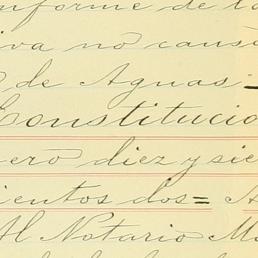 nforme de la
iva no caus
de Aguas.
Constitucio
nero diez y sie
cientos dos= A
Al Notario M